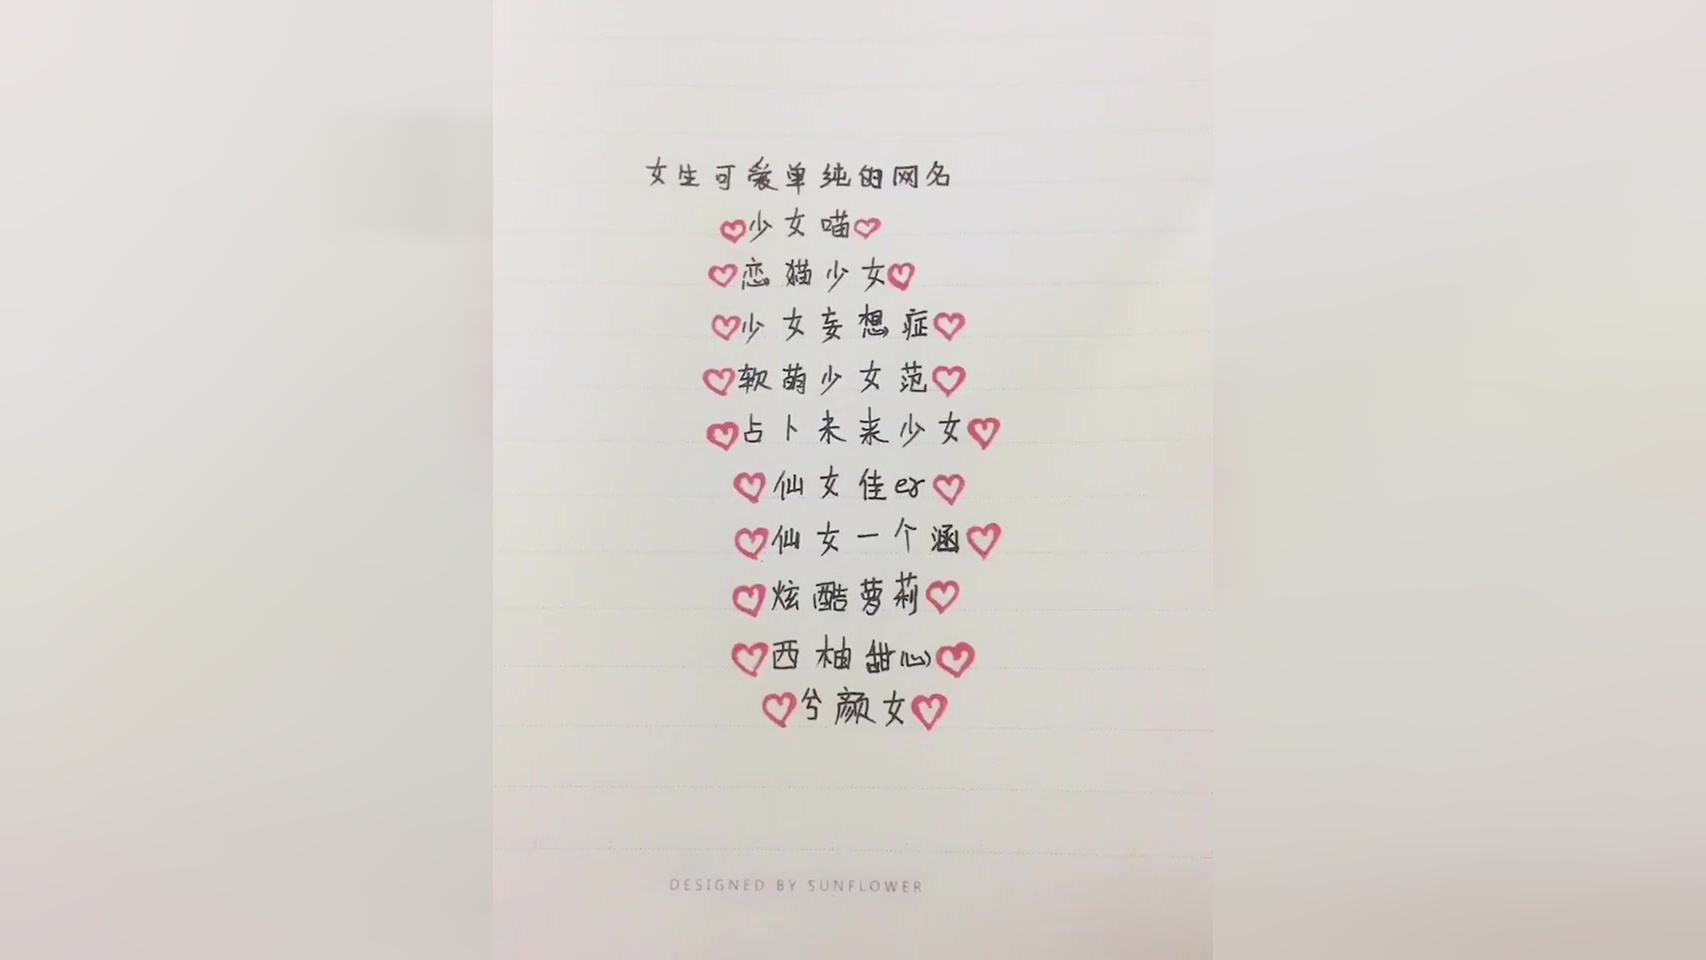 女生可爱单纯的网名
♡少女喵♡
♡恋猫少女♡
♡少女妄想症♡
♡软萌少女范♡
♡占卜未来少女♡
♡仙女佳er♡
♡仙女一个涵♡
♡炫酷萝莉♡
♡西柚甜心♡
♡兮颜女♡
DESIGNED BY SUNFLOWER